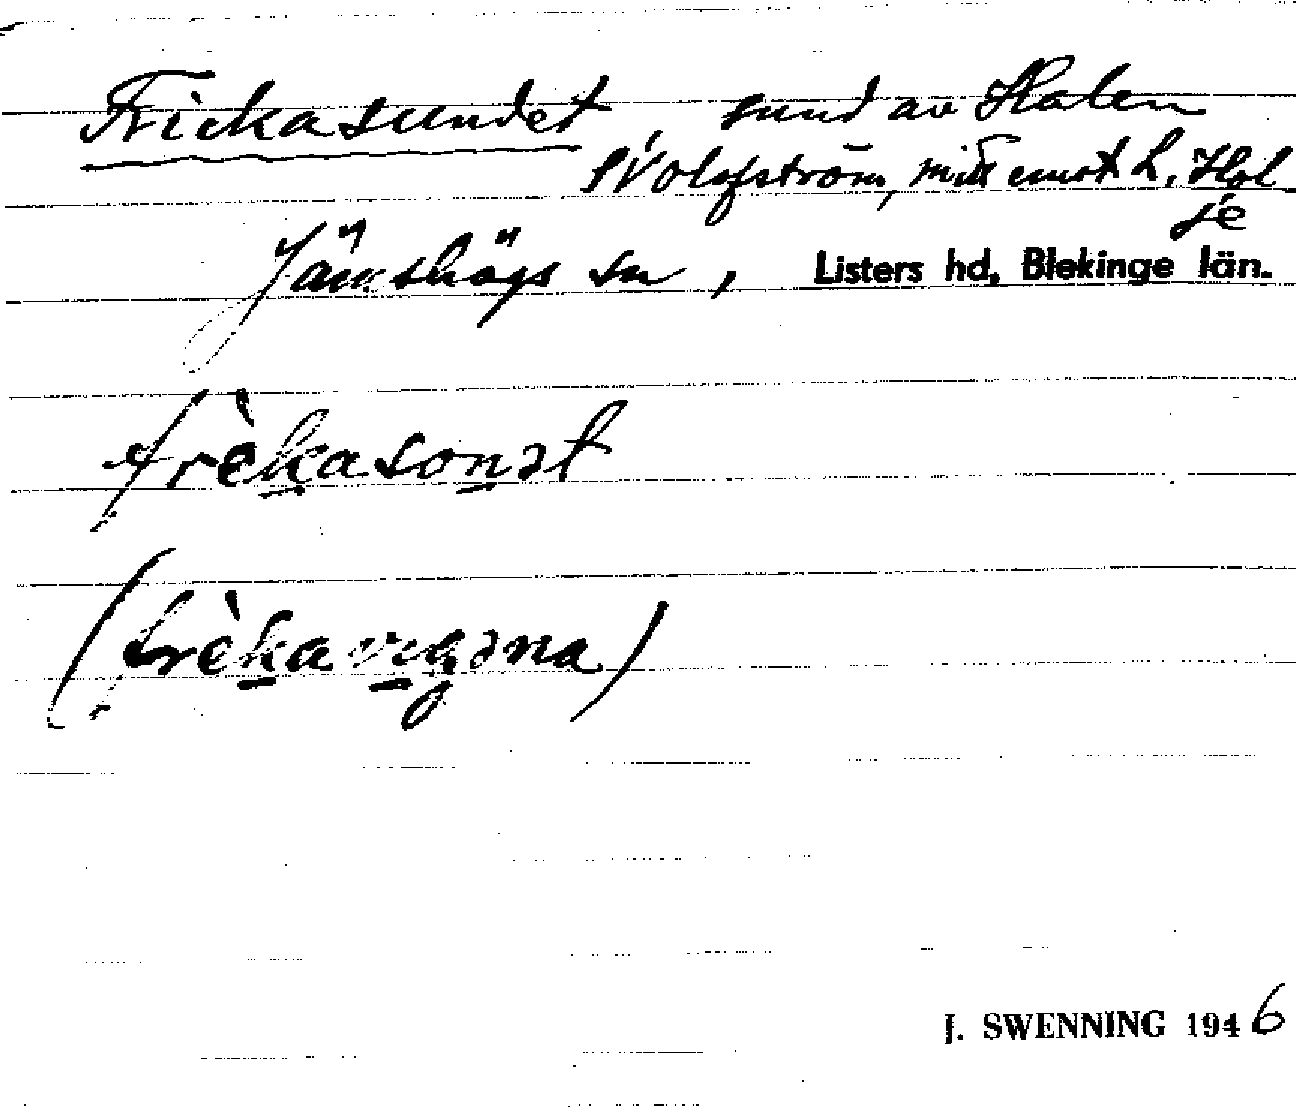 Frickasundet, sund av Halen
i Volgström, mitt emot L. Hal
je
Jämshögs sn, Listers hd, Blekinge län.
frèkasonət
(frèkavegəna)
J. SWENNING 1946